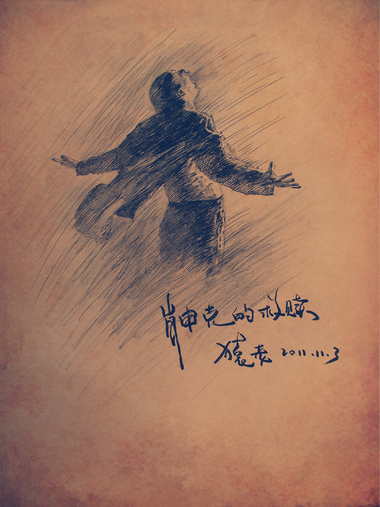 肖申克的救赎
2011.11.3